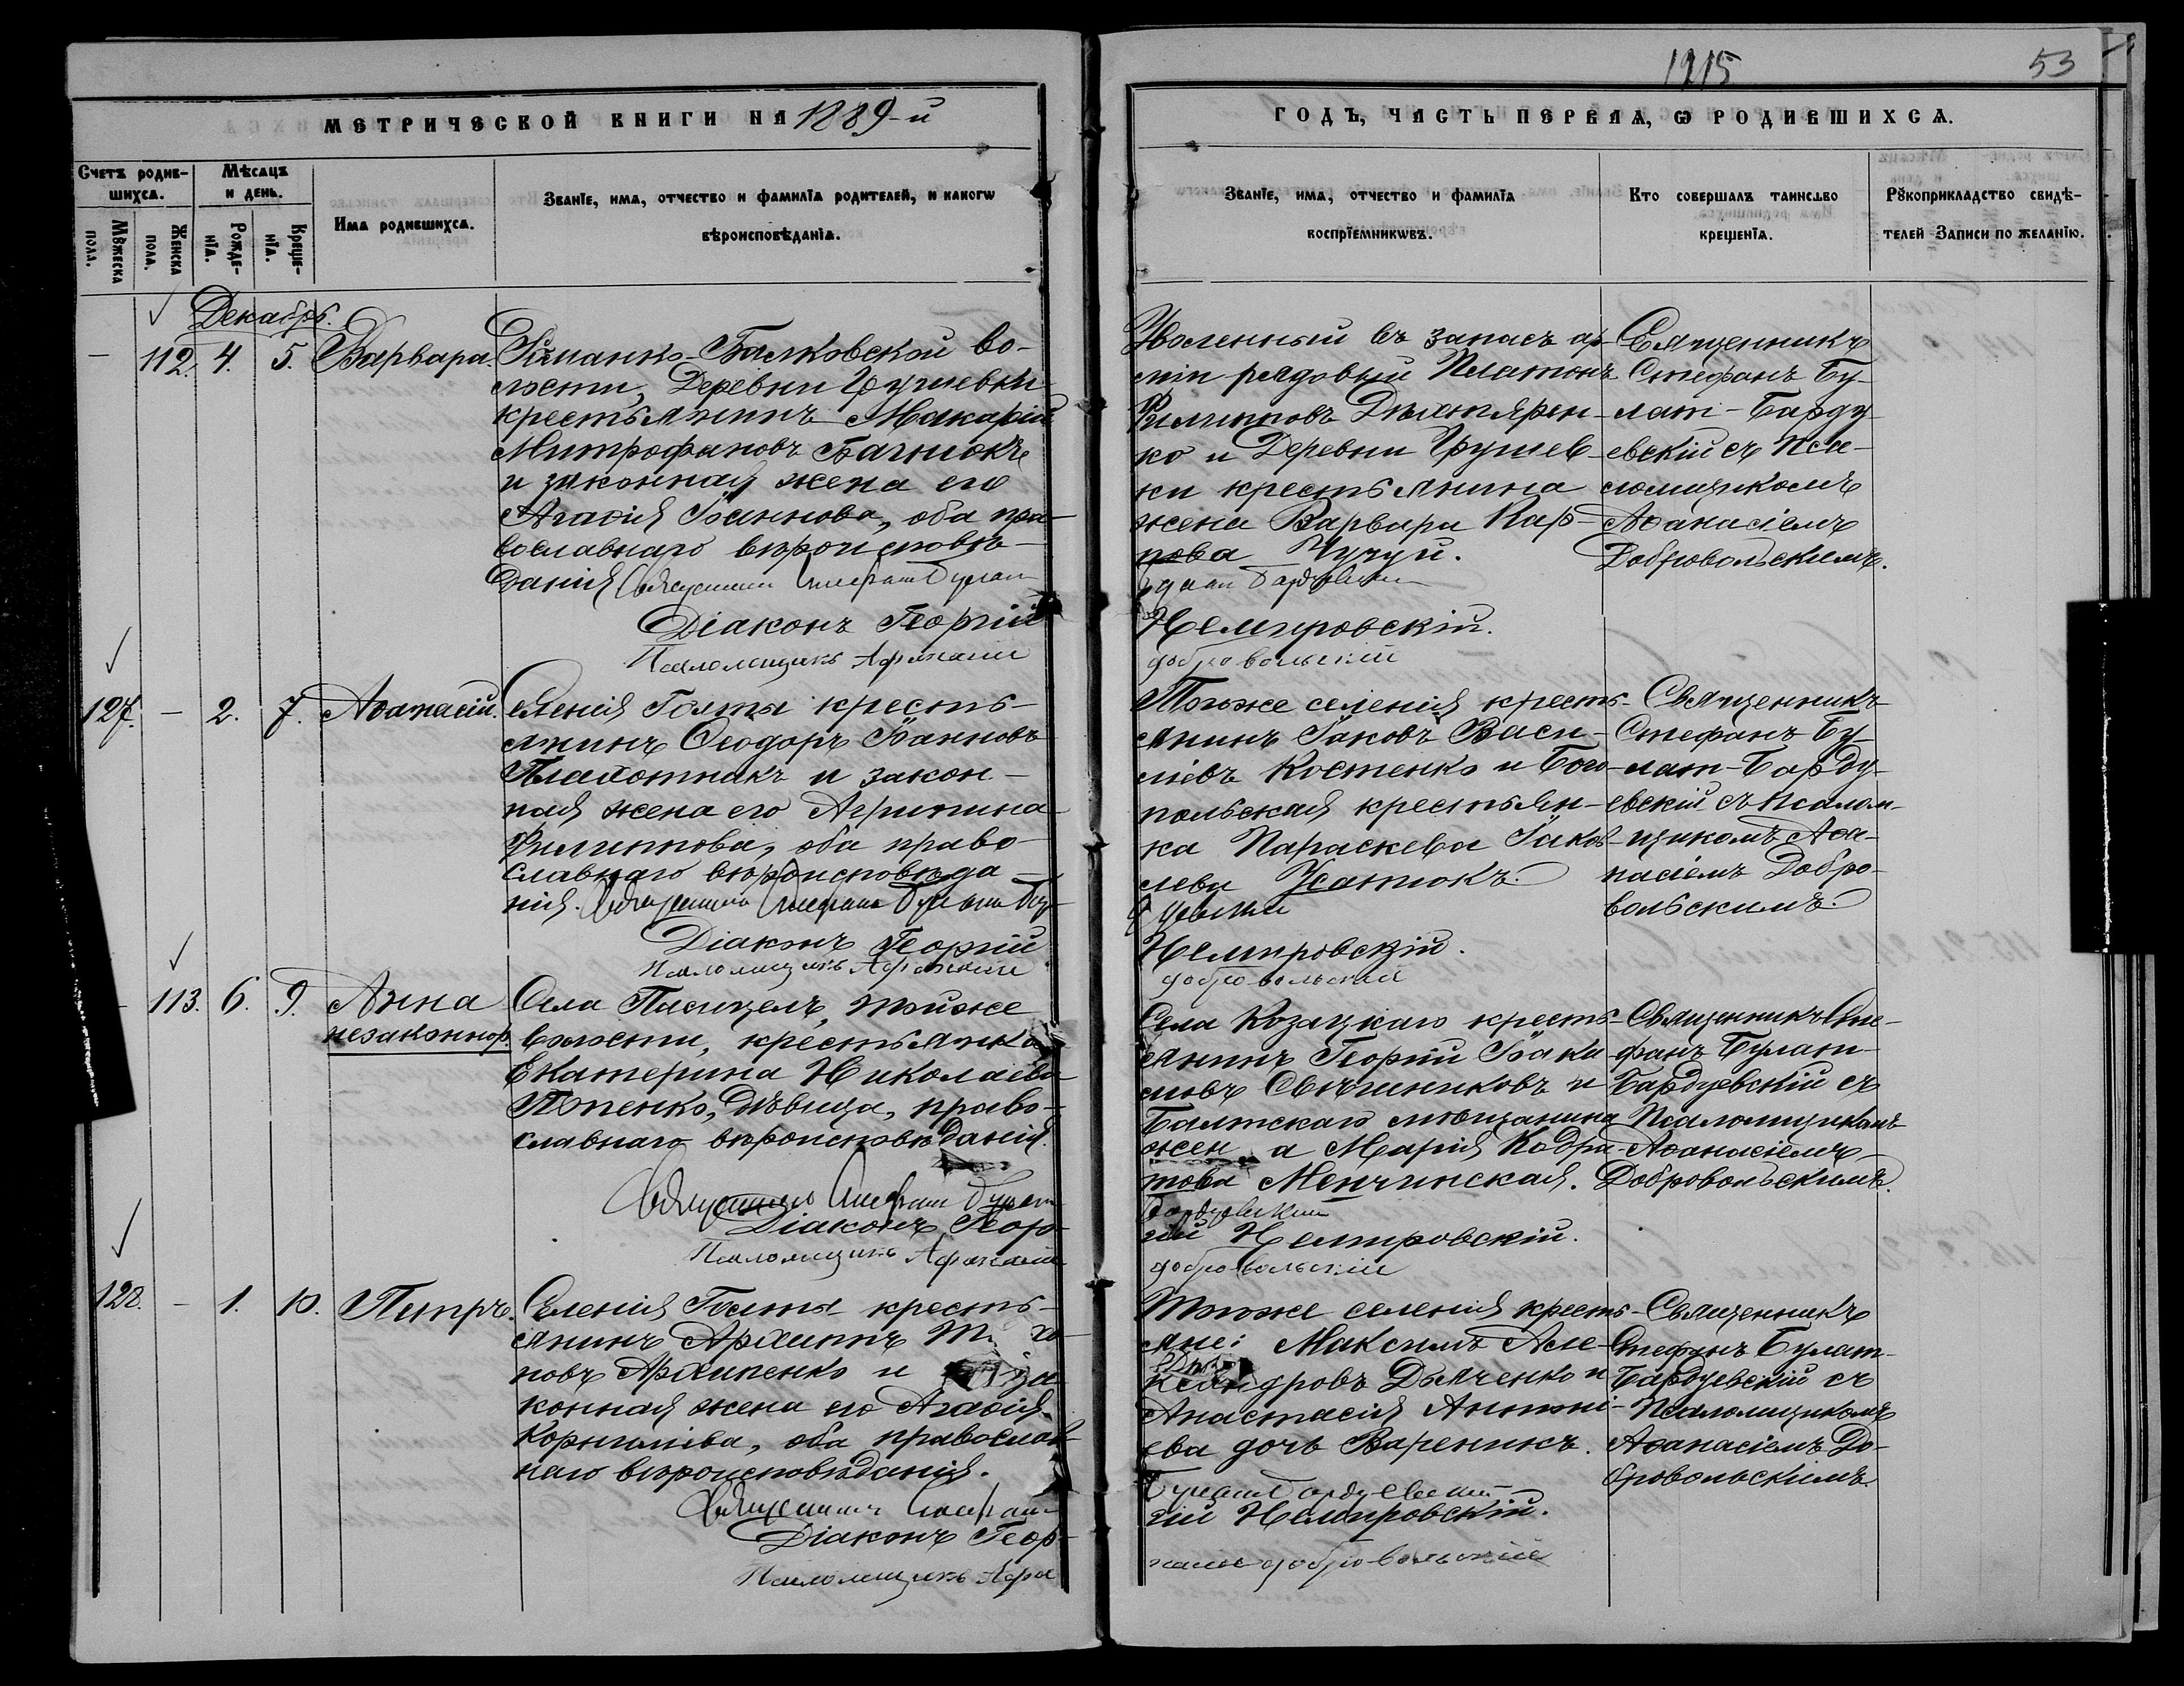 1215
53
МЕТРИЧЕСКОЙ КНИГИ НА 1889-й
ГОДЪ, ЧАСТЬ ПЕРВАЯ, Ѡ РОДИВШИХСЯ.
Счетъ родив-
шихся.
Мужеска
пола.
Женска
пола.
Мѣсяцъ
и день.
Рожде-
нїя.
Креще-
нїя.
Имя родившихся.
Званїе, имя, отчество и фамилїя родителей, и какогѡ
вѣроисповѣданїя.
Званїе, имя, отчество и фамилїя
воспрїемникѡвъ.
Кто совершалъ таинство
крещенїя.
Рꙋкоприкладство свидѣ-
телей Записи по желанїю.
Декабрь.
— 112. 4. 5. Варвара.
-Балковской во-
лости, Деревни Грушевки
крестьянинъ Макарій
Митрофановъ Багнюкъ
и законная жена его
Агаѳія Іоаннова, оба пра-
вославнаго вѣроисповѣ-
данія Священникъ Стефанъ Булат
Діаконъ Георгій
Псаломщикъ Афанасий
Уволенный въ запасъ ар-
міи рядовый Платонъ
Филиповъ Дехтярен-
ко и Деревни Грушев-
ки крестьянина
жена Варвара Кар-
пова Чугуй.
Бардуевский
Немировскій.
добровольский
Священникъ
Стефанъ Бу-
лат-Барду-
евскій съ Пса-
ломщикомъ
Аѳанасіемъ
Добровольскимъ.
127. — 2. 7. Аѳанасій.
Селенія Голты кресть-
янинъ Ѳеодоръ Іоанновъ
Плахотнякъ и закон-
ная жена его Агрипина
Филиппова, оба право-
славнаго вѣроисповѣда-
нія. Священникъ Стефанъ Булат Бар-
Діаконъ Георгій
Псаломщикъ Афанасий
Тогоже селенія кресть-
янинъ Іаковъ Васи-
ліевъ Костенко и Бого-
польская крестьян-
ка Параскева Іаков-
лева Усатюкъ.
дуевский
Немировскій.
добровольский
Священникъ
Стефанъ Бу-
лат-Барду-
евскій съ Псалом-
щикомъ Аѳа-
насіемъ Добро-
вольскимъ.
— 113. 6. 9. Анна
незаконнор.
Села Пасицелъ, тойже
волости, крестьянка
Екатерина Николаева
Попенко, дѣвица, право-
славнаго вѣроисповѣданія.
Священникъ Стефанъ Булат
Діаконъ Геор-
Псаломщикъ Афанасий
Села Козацкаго кресть-
янинъ Георгій Іоаки-
мовъ Свѣчниковъ и
Балтскаго мѣщанина
жена Марія Кодра-
това Менчинская.
Бардуевский
гій Немировскій.
добровольский
Священникъ Сте-
фанъ Булат-
Бардуевскій съ
Псаломщикомъ
Аѳанасіемъ
Добровольскимъ.
128. — 1. 10. Петръ.
Селенія Голты кресть-
янинъ Архиппъ
новъ Архипенко и за-
конная жена его Агаѳія
Корниліева, оба православ-
наго вѣроисповѣданія.
Священникъ Стефанъ
Діаконъ Геор-
Псаломщикъ Афа
Тогоже селенія кресть-
яне: Максимъ Але-
ксандровъ Дьяченко и
Анастасія Антоні-
ева дочь Вареникъ.
Булат Бардуевский
гій Немировскій.
насие добровольский
Священникъ
Стефанъ Булат-
Бардуевскій съ
Псаломщикомъ
Аѳанасіемъ До-
бровольскимъ.